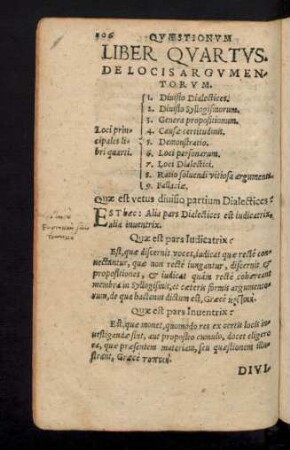 206 QVÆSTIONVM
LIBER QVARTVS.
DE LOCIS ARGVMEN-
TORVM.
1. Diuisio Dialectices.
2. Diuisio Syllogismorum.
3. Genera propositionum.
Loci prin- 4. Causæ certitudinis.
cipales li- 5. Demonstratio.
bri quarti. 6. Loci personarum.
7. Loci Dialectici.
8. Ratio soluendi vitiosa argumenta.
9. Fallaciæ.
Quæ est vetus diuisio partium Dialectices?
EST hæc: Alia pars Dialectices est iudicatrix,
alia inuentrix.
Quæ est pars Iudicatrix?
Est, quæ discernit voces, iudicat quæ rectè con-
nectantur, quæ non rectè iungantur, discernit &
propositiones, & iudicat quàm rectè cohæreant
membra in Syllogismis, et cæteris formis argumento-
rum, de qua hactenus dictum est, Græcè κριτικὴ.
Quæ est pars Inuentrix?
Est, quæ monet, quomodo res ex certis locis in-
uestigandæ sint, aut proposito cumulo, docet eligere
ea, quæ præsentem materiam, seu quæstionem illu-
strant, Græcè τοπικὴ.
DIVI-